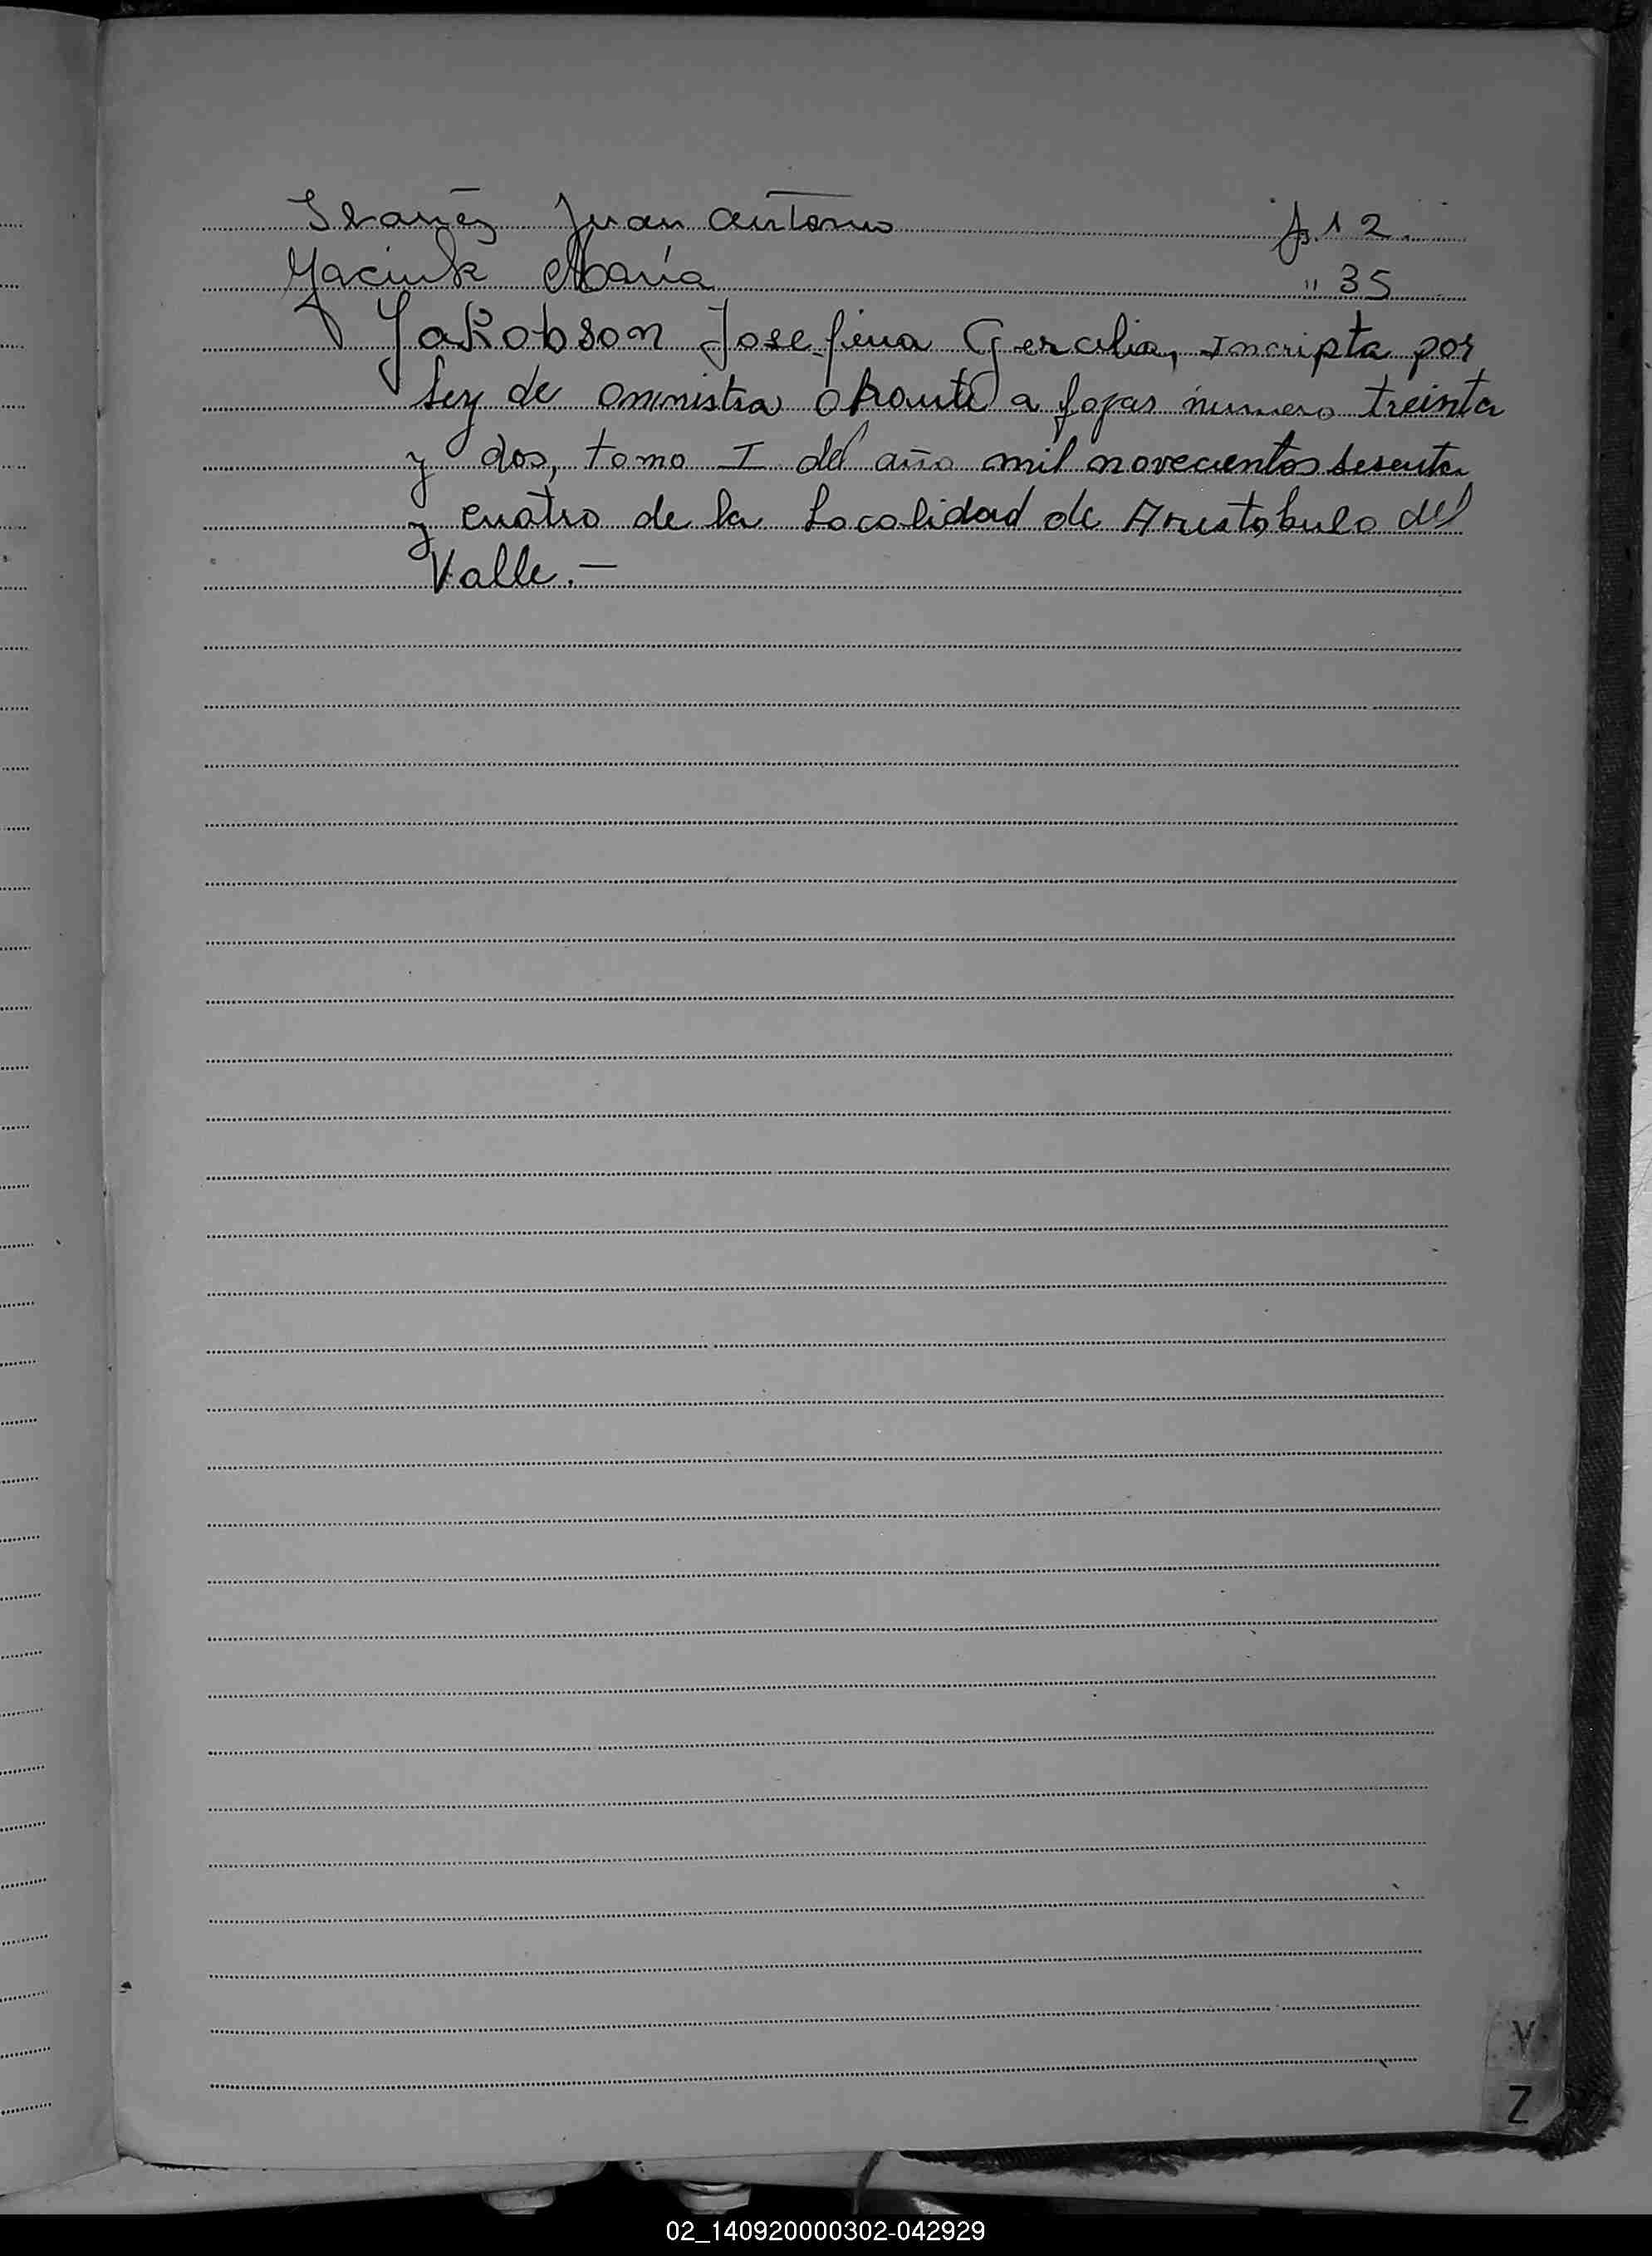 Ibañez Juan Antonio fs. 12.
Yaciuk María " 35
Yakobson Josefina Gercilia, Incripta por
Ley de amnistia obrante a fojas numero treinta
y dos, tomo I del año mil novecientos sesenta
y cuatro de la Localidad de Aristobulo del
Valle.—
Y
Z
02_140920000302-042929